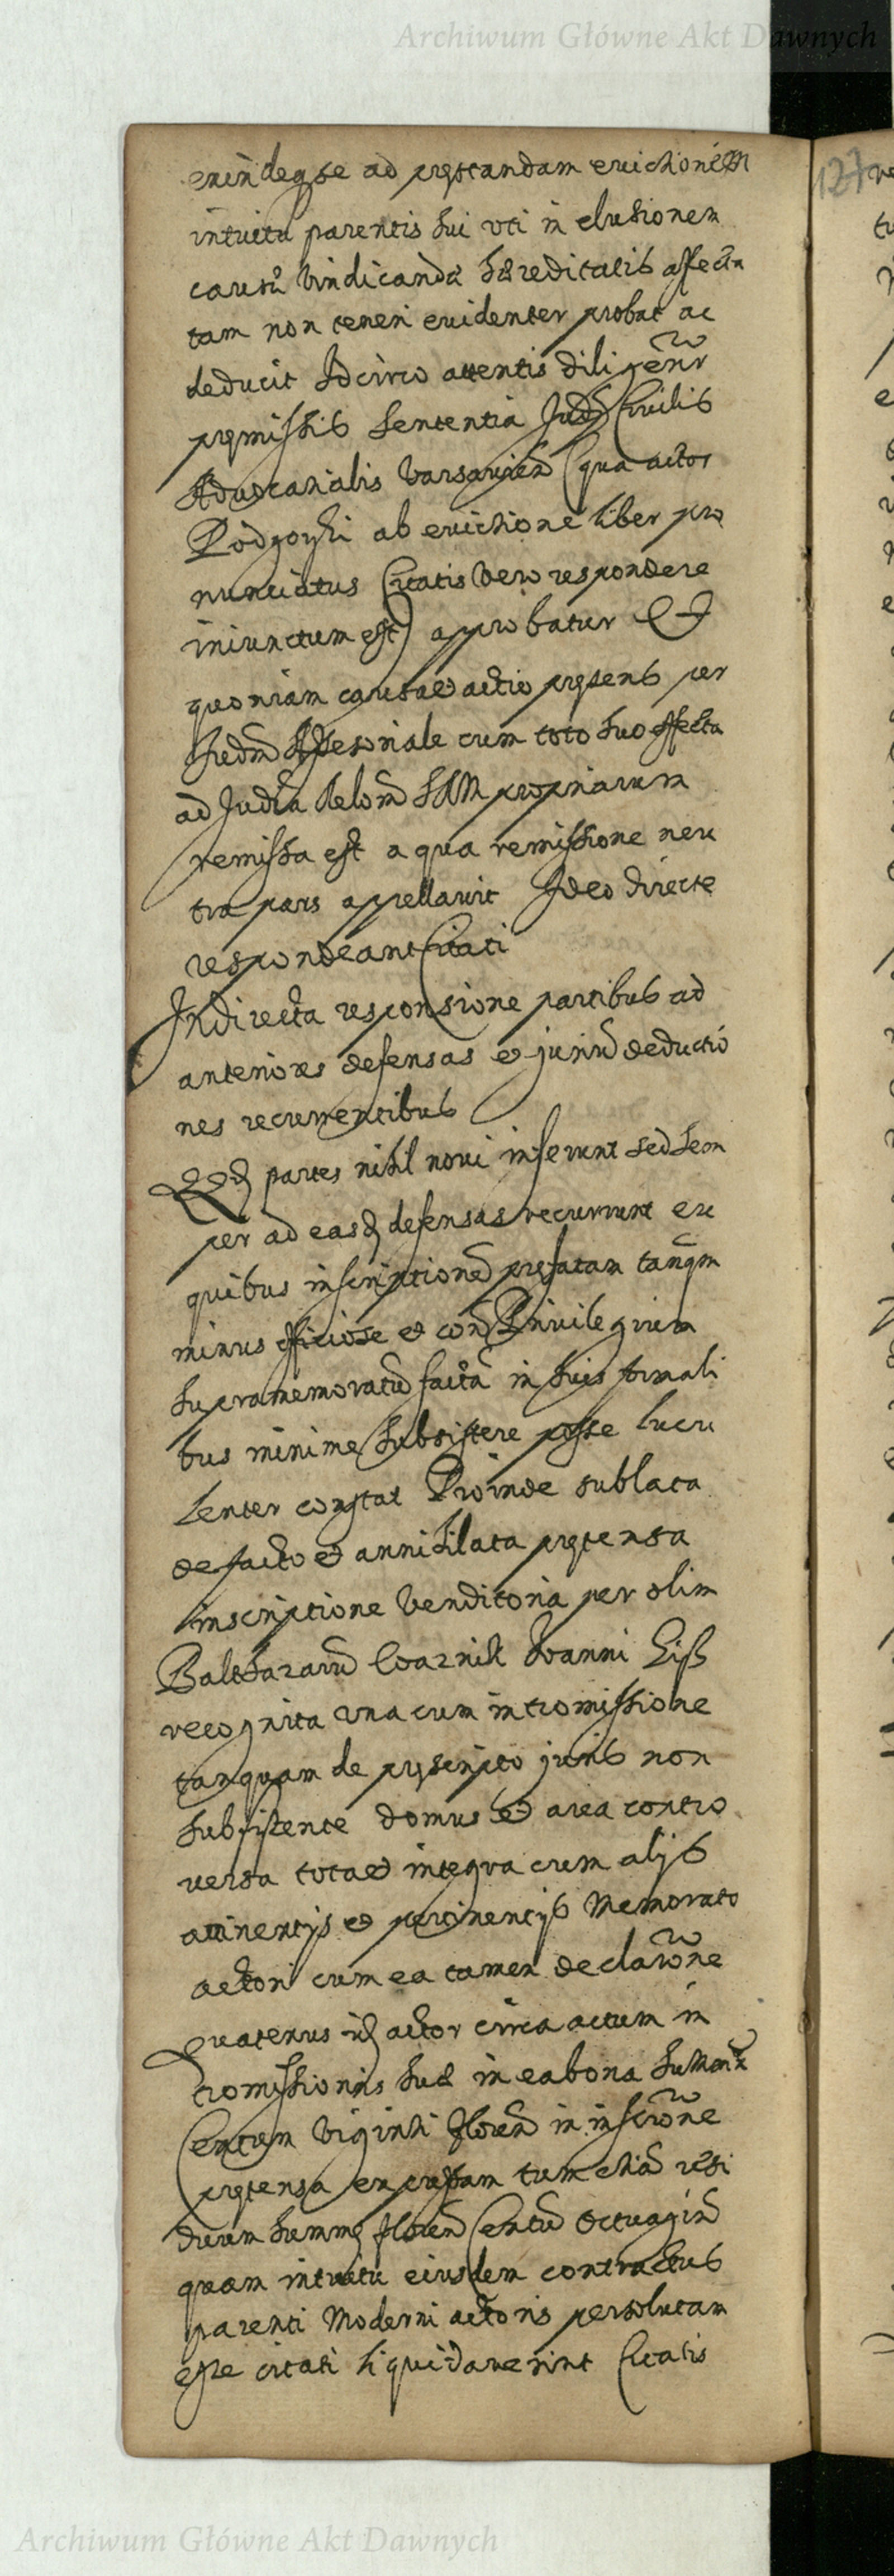 Archiwum Główne Akt Dawnych
exindeque ad prestandam evictionem
127
intuitu parentis sui uti in elusionem
causæ vindicandæ hæreditatis affecta
tam non teneri evidenter probat ac
deducit Idcirco attentis diligenr
premissis Sententia Judy Civilis
Advocatialis Varsavien (qua actor
Podgorski ab evictione liber pro
nunciatus Citatis vero respondere
iniunctum est) approbatur Et
quoniam causa et actio presens per
Judm Assesoriale cum toto suo effectu
ad Judia Relonu SRM propriarum
remissa est a qua remissione neu
tra pars appellavit Ideo directe
respondeant Citati
In directa responsione partibus ad
anteriores defensas et juriu deductio
nes recurrentibus
Qd partes nihil novi inferunt sed sem
per ad easd defensas recurrunt ex
quibus inscriptione prefatam tanqm
minus officiose et con Privilegium
supramemoratu facta in suis formali
bus minime subsistere posse lucu
lenter constat Proinde sublata
de facto et annihilata pretensa
inscriptione venditoria per olim
Balthazaru Joanni
recognita una cum intromissione
tanquam de prescripto juris non
subsistente domus et area contro
versa tota et integra cum alijs
attinentijs et pertinentijs Memorato
actori cum ea tamen declarone
quatenus id actor circa actum in
tromissionis suæ in ea bona summam
Centum viginti floren in inscrone
pretensa expressam tum etia resi
duum summe floren Centu octuagin
quam intuitu eiusdem contractus
parenti Moderni actoris persolutam
esse citati liquidaverint Citatis
Archiwum Główne Akt Dawnych